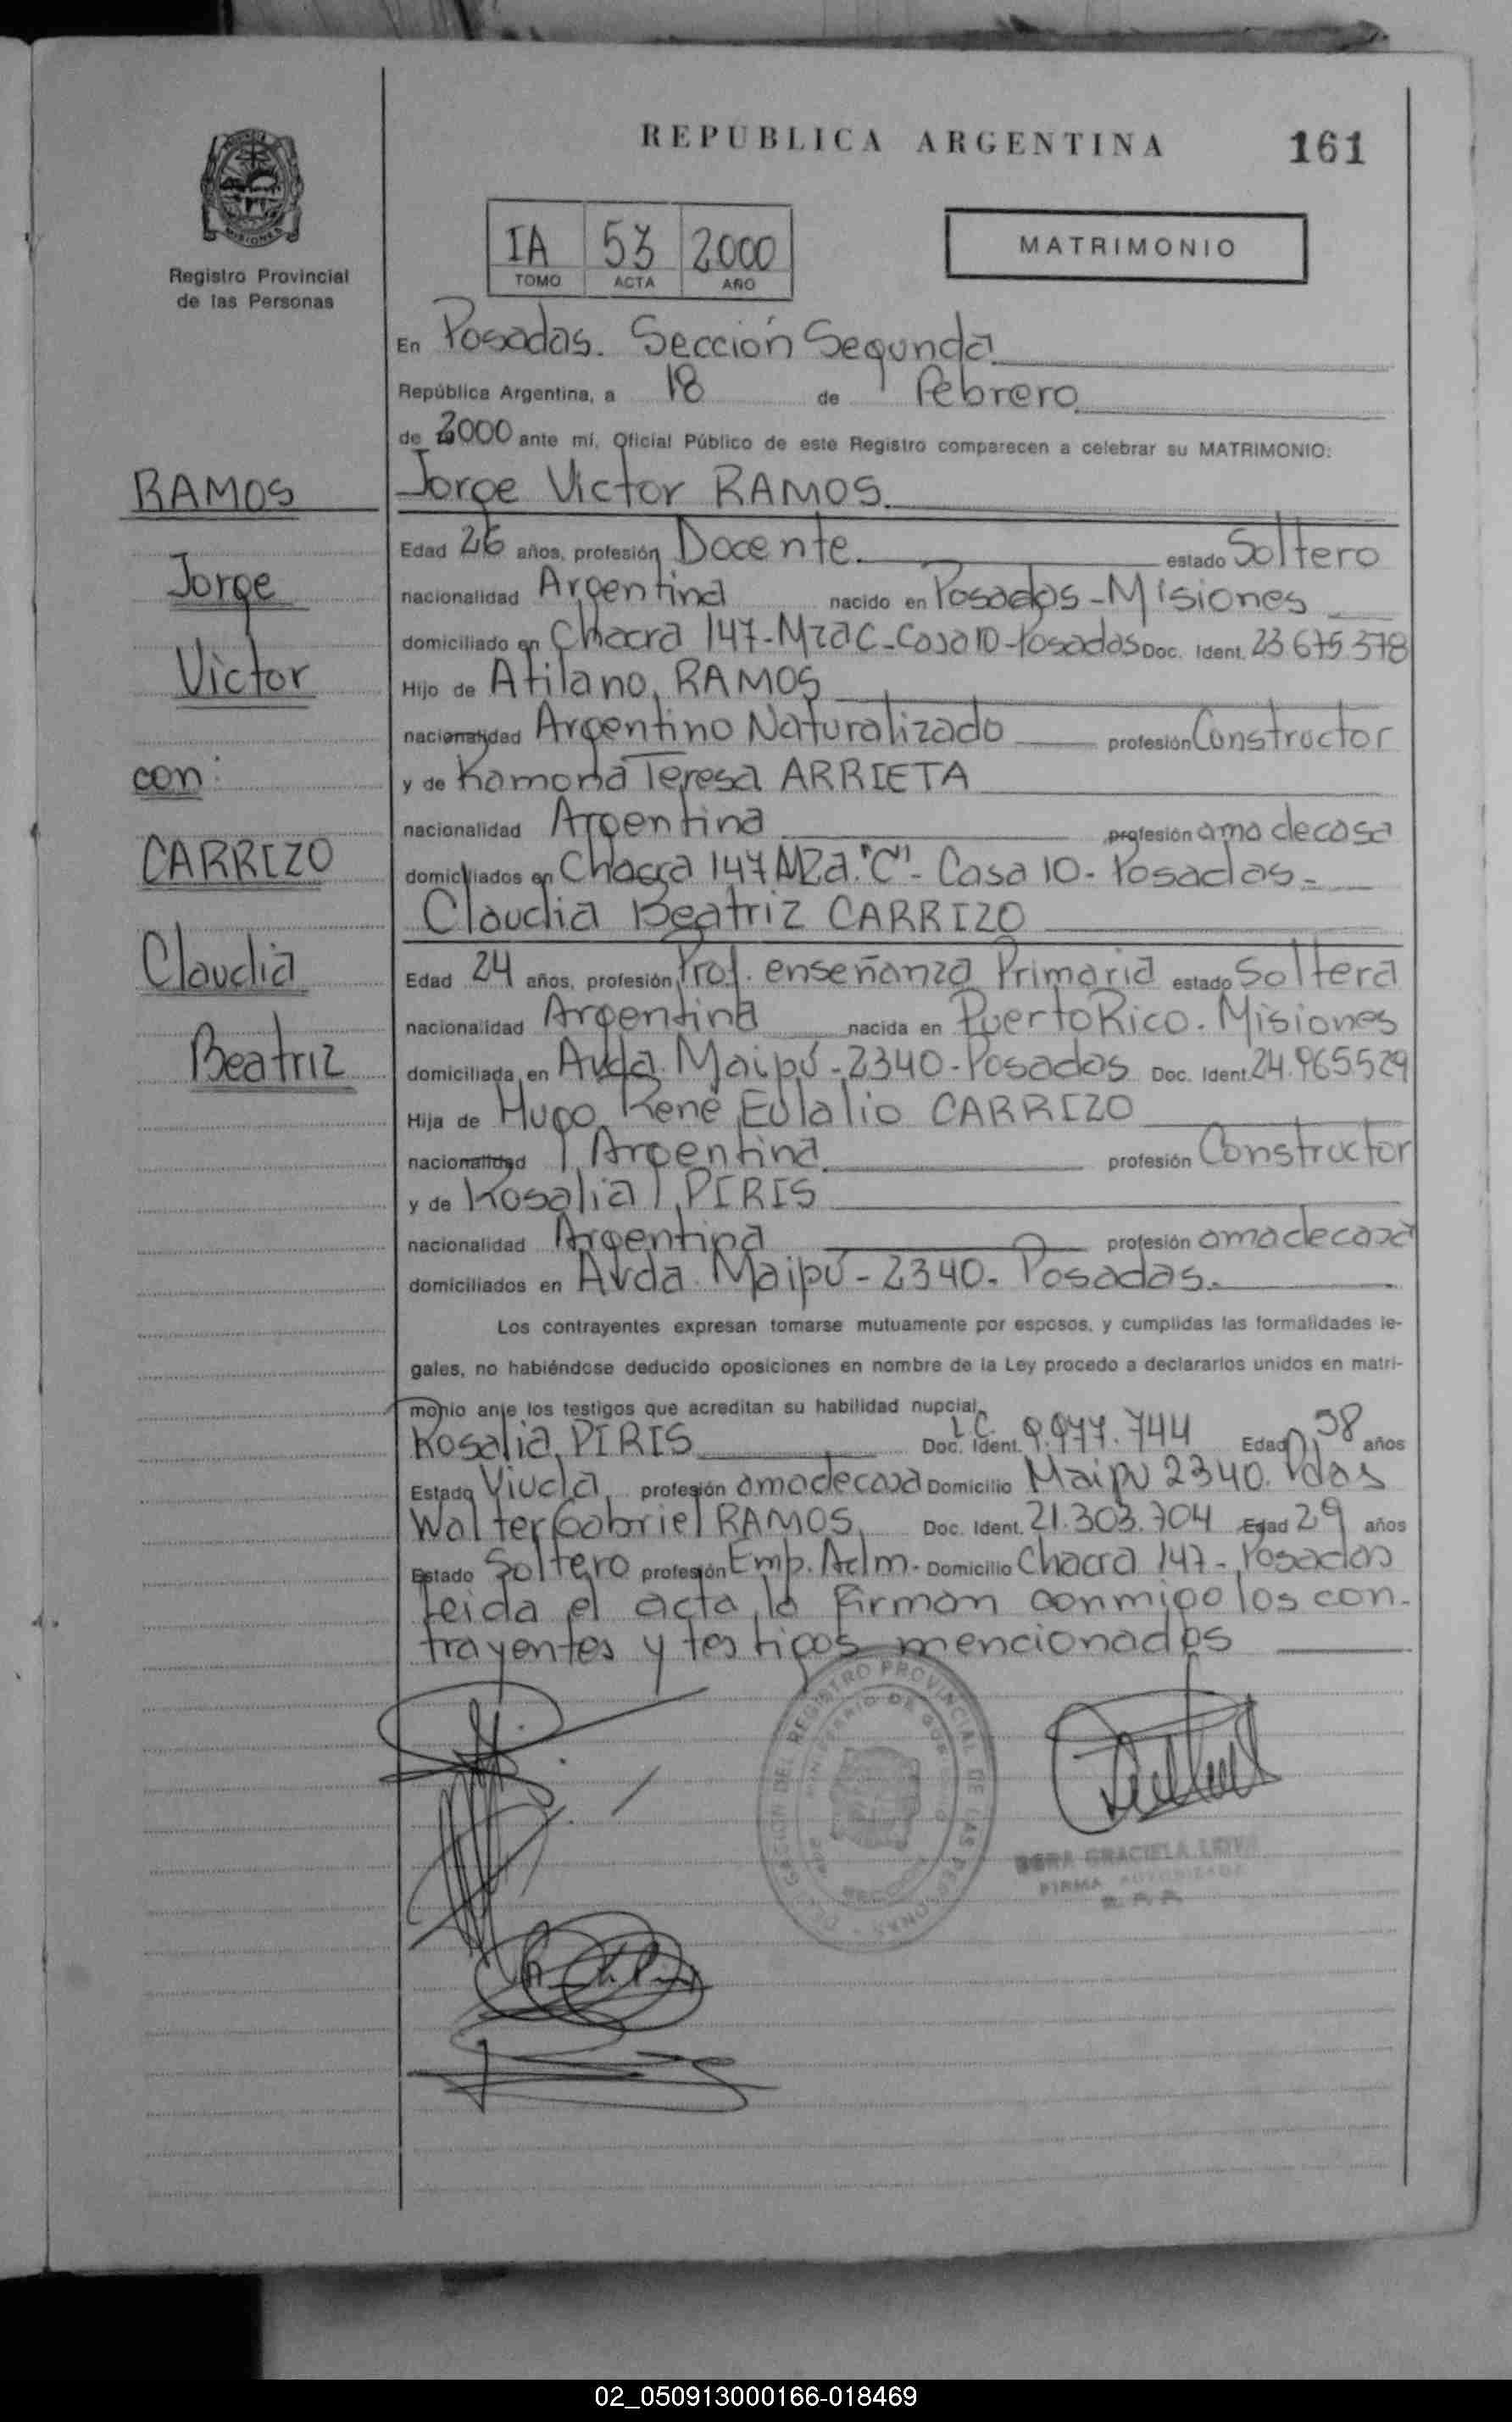 REPUBLICA ARGENTINA
161
MISIONES
Registro Provincial
de las Personas
IA 53 2000
TOMO ACTA AÑO
MATRIMONIO
En Posadas. Sección Segunda
República Argentina, a 18 de Febrero
de 2000 ante mí, Oficial Público de este Registro comparecen a celebrar su MATRIMONIO:
RAMOS
Jorge
Victor
con:
CARRIZO
Claudia
Beatriz
Jorge Victor RAMOS
Edad 26 años, profesión Docente estado Soltero
nacionalidad Argentina nacido en Posadas - Misiones
domiciliado en Chacra 147 - Mza C - Casa 10 - Posadas Doc. Ident. 23.675.378
Hijo de Atilano, RAMOS
nacionalidad Argentino Naturalizado profesión Constructor
y de Ramona Teresa ARRIETA
nacionalidad Argentina profesión ama de casa
domiciliados en Chacra 147 Mza. "C" - Casa 10 - Posadas -
Claudia Beatriz CARRIZO
Edad 24 años, profesión Prof. enseñanza Primaria estado Soltera
nacionalidad Argentina nacida en Puerto Rico. Misiones
domiciliada en Avda. Maipú - 2340 - Posadas Doc. Ident. 24.965529
Hija de Hugo René Eulalio CARRIZO
nacionalidad Argentina profesión Constructor
y de Rosalia PIRIS
nacionalidad Argentina profesión ama de casa
domiciliados en Avda. Maipú - 2340 - Posadas.
Los contrayentes expresan tomarse mutuamente por esposos, y cumplidas las formalidades le-
gales, no habiéndose deducido oposiciones en nombre de la Ley procedo a declararlos unidos en matri-
monio ante los testigos que acreditan su habilidad nupcial.
Rosalia, PIRIS Doc. Ident. L.C. 9.977.744 Edad 58 años
Estado Viuda profesión ama de casa Domicilio Maipú 2340. Pdas
Walter Gabriel RAMOS Doc. Ident. 21.303.704 Edad 29 años
Estado Soltero profesión Emp. Adm. Domicilio Chacra 147 - Posadas
Leida el acta, la firman conmigo los con-
trayentes y testigos mencionados
GRACIELA
FIRMA AUTORIZADA
02_050913000166-018469